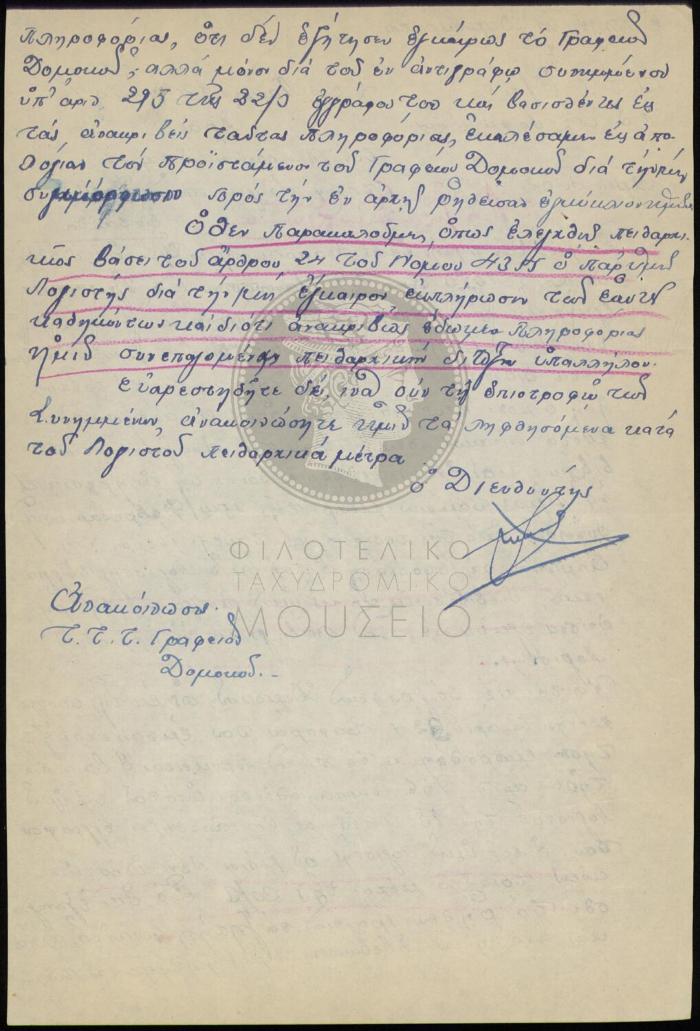 πληροφορίας, ὅτι δέν ἐζήτησεν ἐγκαίρως τό Γραφεῖον
Δομοκοῦ, ἀλλά μόνον διά τοῦ ἐν ἀντιγράφῳ συνημμένου
ὑπ' ἀριθ. 293 τῆς 22/9 ἐγγράφου του καί βασισθέντες εἰς
τάς ἀνακριβεῖς ταύτας πληροφορίας, ἐκαλέσαμεν εἰς ἀπο-
λογίαν τόν προϊστάμενον τοῦ Γραφείου Δομοκοῦ διά τήν μή
συμμόρφωσιν πρός τήν ἐν ἀρχῇ ῥηθεῖσαν ἐγκύκλιον
Ὅθεν παρακαλοῦμεν, ὅπως ἐλεγχθῇ πειθαρχι-
κῶς βάσει τοῦ ἄρθρου 24 τοῦ Νόμου 4315 ὁ παρ' ὑμῖν
Λογιστής διά τήν μή ἔγκαιρον ἐκπλήρωσιν τῶν ἑαυτοῦ
καθηκόντων καί διότι ἀνακριβῶς ἔδωκεν πληροφορίας
ἡμῖν συνεπαγομένας πειθαρχικήν δίωξιν ὑπαλλήλου.
Εὐαρεστηθῆτε δέ, ἵνα σύν τῇ ἐπιστροφῇ τῶν
συνημμένων, ἀνακοινώσητε ἡμῖν τα ληφθησόμενα κατά
τοῦ Λογιστοῦ πειθαρχικά μέτρα
ὁ Διευθυντής
ΦΙΛΟΤΕΛΙΚΟ
ΤΑΧΥΔΡΟΜΙΚΟ
ΜΟΥΣΕΙΟ
Ἀνακοίνωσις.
Τ.Τ.Τ. Γραφεῖον
Δομοκοῦ.-